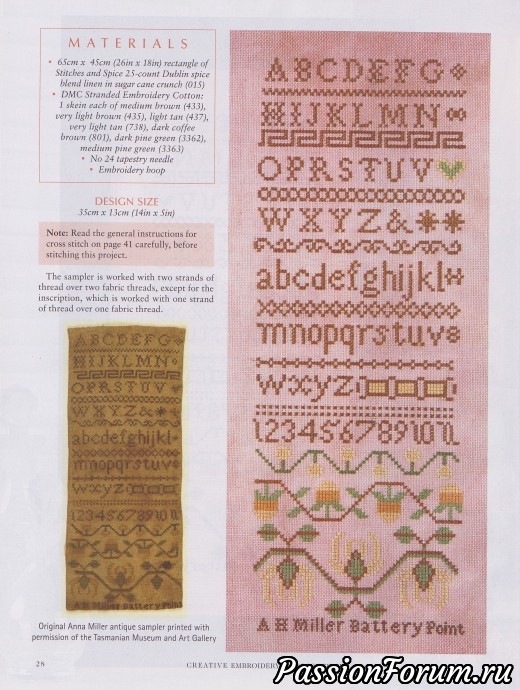 MATERIALS
• 65cm x 45cm (26in x 18in) rectangle of
Stitches and Spice 25-count Dublin spice
blend linen in sugar cane crunch (015)
• DMC Stranded Embroidery Cotton:
1 skein each of medium brown (433),
very light brown (435), light tan (437),
very light tan (738), dark coffee
brown (801), dark pine green (3362),
medium pine green (3363)
• No 24 tapestry needle
• Embroidery hoop
DESIGN SIZE
35cm x 13cm (14in x 5in)
Note: Read the general instructions for
cross stitch on page 41 carefully, before
stitching this project.
The sampler is worked with two strands of
thread over two fabric threads, except for the
inscription, which is worked with one strand
of thread over one fabric thread.
ABCDEFG
HIJKLMN
OPRSTUV
WXYZ&
abcdefghijkl
mnopqrstuv
wxyz
1234567891011
AH Miller Battery Point
Original Anna Miller antique sampler printed with
permission of the Tasmanian Museum and Art Gallery
ABCDEFG
HIJKLMN
OPRSTUV
WXYZ&
abcdefghijkl
mnopqrstuv
wxyz
1234567891011
AH Miller Battery Point
28
CREATIVE EMBROIDERY
PassionForum.ru